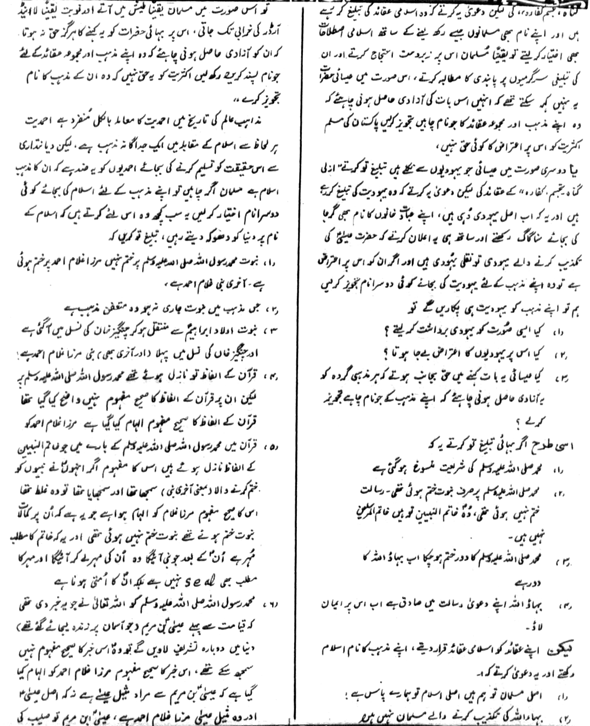 گناہ، تجسیم، کفارہ"، کی لیکن دعویٰ یہ کرتے کہ وہ اسلامی عقائد کی تبلیغ کر رہے
ہیں اور اپنے نام بھی مسلمانوں جیسے رکھ لینے کے ساتھ اسلامی اصطلاحات
بھی اختیار کر لیتے تو یقیناً مسلمان اس پر زبردست احتجاج کرتے اور ان
کی تبلیغی سرگرمیوں پر پابندی کا مطالبہ کرتے، اس صورت میں عیسائی حضرات
یہ نہیں کہہ سکتے تھے کہ انہیں اس بات کی آزادی حاصل ہونی چاہئے کہ
وہ اپنے مذہب اور مجموعہ عقائد کا جو نام چاہیں تجویز کر لیں پاکستان کی مسلم
اکثریت کو اس پر اعتراض کا کوئی حق نہیں،
یا دوسری صورت میں عیسائی جو یہودیوں سے نکلے ہیں تبلیغ تو کرتے "ازلی
گناہ، تجسیم، کفارہ" کے عقائد کی لیکن دعویٰ یہ کرتے کہ وہ یہودیت کی تبلیغ کر رہے
ہیں اور یہ کہ اب اصلی یہودی وہی ہیں، اپنے عبادت خانوں کا نام بھی گرجا
کی بجائے سناگاگ رکھتے اور ساتھ ہی یہ اعلان کرتے کہ حضرت مسیحؑ کی
تکذیب کرنے والے یہودی تو نقلی یہودی ہیں اور اگر ان کو اس پر اعتراض
ہے تو وہ اپنے مذہب کے لئے یہودیت کی بجائے کوئی دوسرا نام تجویز کر لیں
ہم تو اپنے مذہب کو یہودیت ہی پکاریں گے تو
(۱) کیا ایسی صورت کو یہودی برداشت کر لیتے؟
(۲) کیا اس پر یہودیوں کا اعتراض بے جا ہوتا؟
(۳) کیا عیسائی یہ بات کہنے میں حق بجانب ہوتے کہ ہر مذہبی گروہ کو
یہ آزادی حاصل ہونی چاہئے کہ اپنے مذہب کے جو نام چاہے تجویز
کرلے؟
اسی طرح اگر بہائی تبلیغ تو کرتے یہ کہ
(۱) محمد صلی اللہ علیہ وسلم کی شریعت منسوخ ہو گئی ہے
(۲) محمد صلی اللہ علیہ وسلم پر صرف نبوت ختم ہوئی تھی۔ رسالت
ختم نہیں ہوئی تھی، وہ خاتم النبیین تو ہیں خاتم المرسلین
نہیں ہیں۔
(۳) محمد صلی اللہ علیہ وسلم کا دور ختم ہو چکا اب بہاء اللہ کا
دور ہے
(۴) بہاء اللہ اپنے دعویٰ رسالت میں صادق ہے اب اس پر ایمان
لاؤ۔
لیکن اپنے عقائد کو اسلامی عقائد قرار دیتے، اپنے مذہب کا نام اسلام
رکھتے اور یہ دعویٰ کرتے کہ:
(۱) اصل مسلمان تو ہم ہیں، اصلی اسلام تو ہمارے پاس ہے؛
(۲) بہاء اللہ کی تکذیب کرنے والے مسلمان نہیں ہیں
تو اس صورت میں مسلمان یقیناً طیش میں آتے اور نوبت یقیناً لا اینڈ
آرڈر کی خرابی تک جاتی، اس پر بہائی حضرات کو یہ کہنے کا ہرگز حق نہ ہوتا
کہ ان کو آزادی حاصل ہونی چاہئے کہ وہ اپنے مذہب اور مجموعہ عقائد کے لئے
جو نام پسند کریں رکھ لیں اکثریت کو یہ حق نہیں کہ وہ ان کے مذہب کا نام
تجویز کرے،
مذاہب عالم کی تاریخ میں احمدیت کا معاملہ بالکل منفرد ہے احمدیت
ہر لحاظ سے اسلام کے مقابلہ میں ایک جداگانہ مذہب ہے۔ لیکن دیانتداری
سے اس حقیقت کو تسلیم کرنے کی بجائے احمدیوں کو یہ ضد ہے کہ ان کا مذہب
اسلام ہے مسلمان اگر چاہیں تو اپنے مذہب کے لئے اسلام کی بجائے کوئی
دوسرا نام اختیار کر لیں یہ سب کچھ وہ اس لئے کرتے ہیں کہ اسلام کے
نام پر دنیا کو دھوکہ دیتے رہیں، تبلیغ تو کریں کہ
(۱) نبوت محمد رسول اللہ صلی اللہ علیہ وسلم پر ختم نہیں مرزا غلام احمد پر ختم ہوئی
ہے۔ آخری نبی غلام احمد ہے،
(۲) جس مذہب میں نبوت جاری نہ ہو وہ متعفن مذہب ہے
(۳) نبوت اولاد ابراہیمؑ سے منتقل ہو کر چنگیز خان کی نسل میں آگئی ہے
اور چنگیز خان کی نسل میں پہلا (اور آخری بھی) نبی مرزا غلام احمد ہے؛
(۴) قرآن کے الفاظ تو نازل ہوئے تھے محمد رسول اللہ صلی اللہ علیہ وسلم پر
لیکن ان پر قرآن کے الفاظ کا صحیح مفہوم نہیں واضح کیا گیا تھا
قرآن کے الفاظ کا صحیح مفہوم الہام کیا گیا ہے مرزا غلام احمد کو
(۵) قرآن میں محمد رسول اللہ صلی اللہ علیہ وسلم کے بارے میں جو خاتم النبیین
کے الفاظ نازل ہوئے ہیں اس کا مفہوم اگر انہوں نے نبیوں کو
ختم کرنے والا (معنی آخری نبی) سمجھا تھا اور سمجھایا تھا تو وہ غلط تھا
اس کا صحیح مفہوم مرزا غلام کو الہام ہوا ہے جو یہ ہے کہ ان پر کمالات
نبوت ختم ہوئے تھے نبوت ختم نہیں ہوئی تھی اور یہ کہ خاتم کا مطلب
مہر ہے ان کے بعد جو نبی آئیگا وہ ان کی مہر لے کر آئیگا اور مہر کا
مطلب بھی seal نہیں ہے بلکہ ان کا امتی ہونا ہے
(۶) محمد رسول اللہ صلی اللہ علیہ وسلم کو اللہ تعالیٰ نے جو یہ خبر دی تھی
کہ قیامت سے پہلے عیسیٰ بن مریم (جو آسمان پر زندہ لیجائے گئے تھے)
دنیا میں دوبارہ تشریف لاویں گے تو وہ اس خبر کا صحیح مفہوم نہیں
سمجھ سکے تھے، اس خبر کا صحیح مفہوم مرزا غلام احمد کو الہام کیا
گیا ہے کہ عیسیٰ بن مریم سے مراد مثیل عیسیٰ ہے نہ کہ اصل عیسیٰؑ
اور وہ مثیل عیسیٰ مرزا غلام احمد ہے، عیسیٰ بن مریم تو صلیب کی